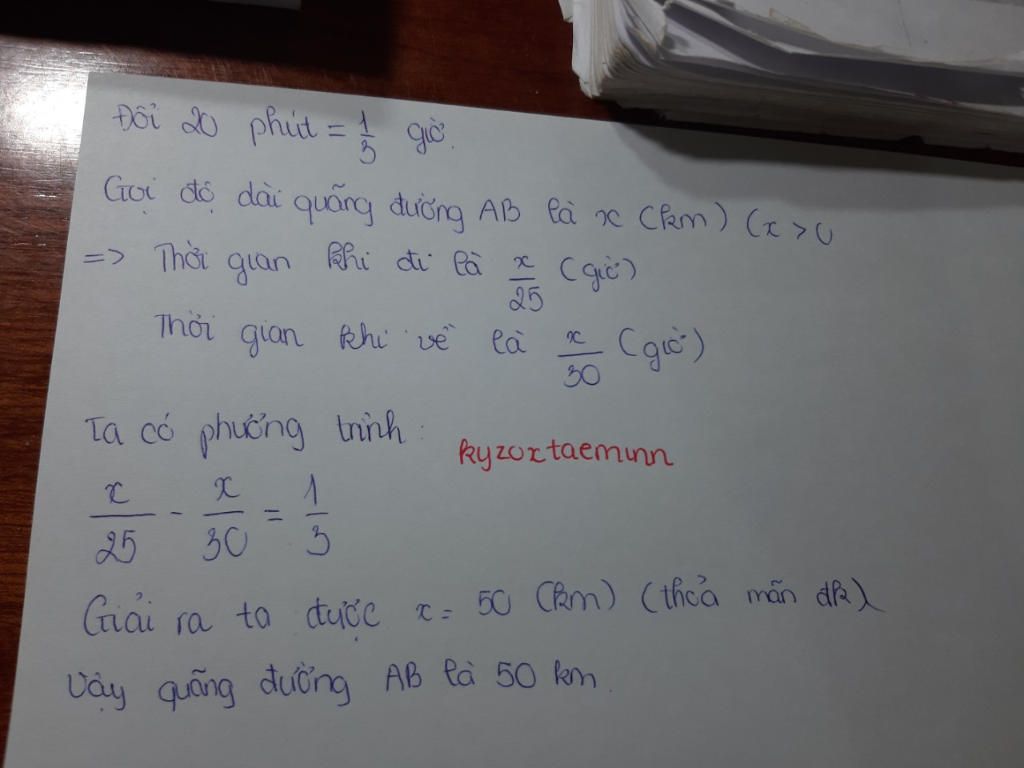 Đổi 20 phút = 1/3 giờ.
Gọi độ dài quãng đường AB là x (km) (x > 0
=> Thời gian khi đi là x/25 (giờ)
Thời gian khi về là x/30 (giờ)
Ta có phương trình:
kyzoxtaeminn
x/25 - x/30 = 1/3
Giải ra ta được x = 50 (km) (thoả mãn đk)
Vậy quãng đường AB là 50 km.